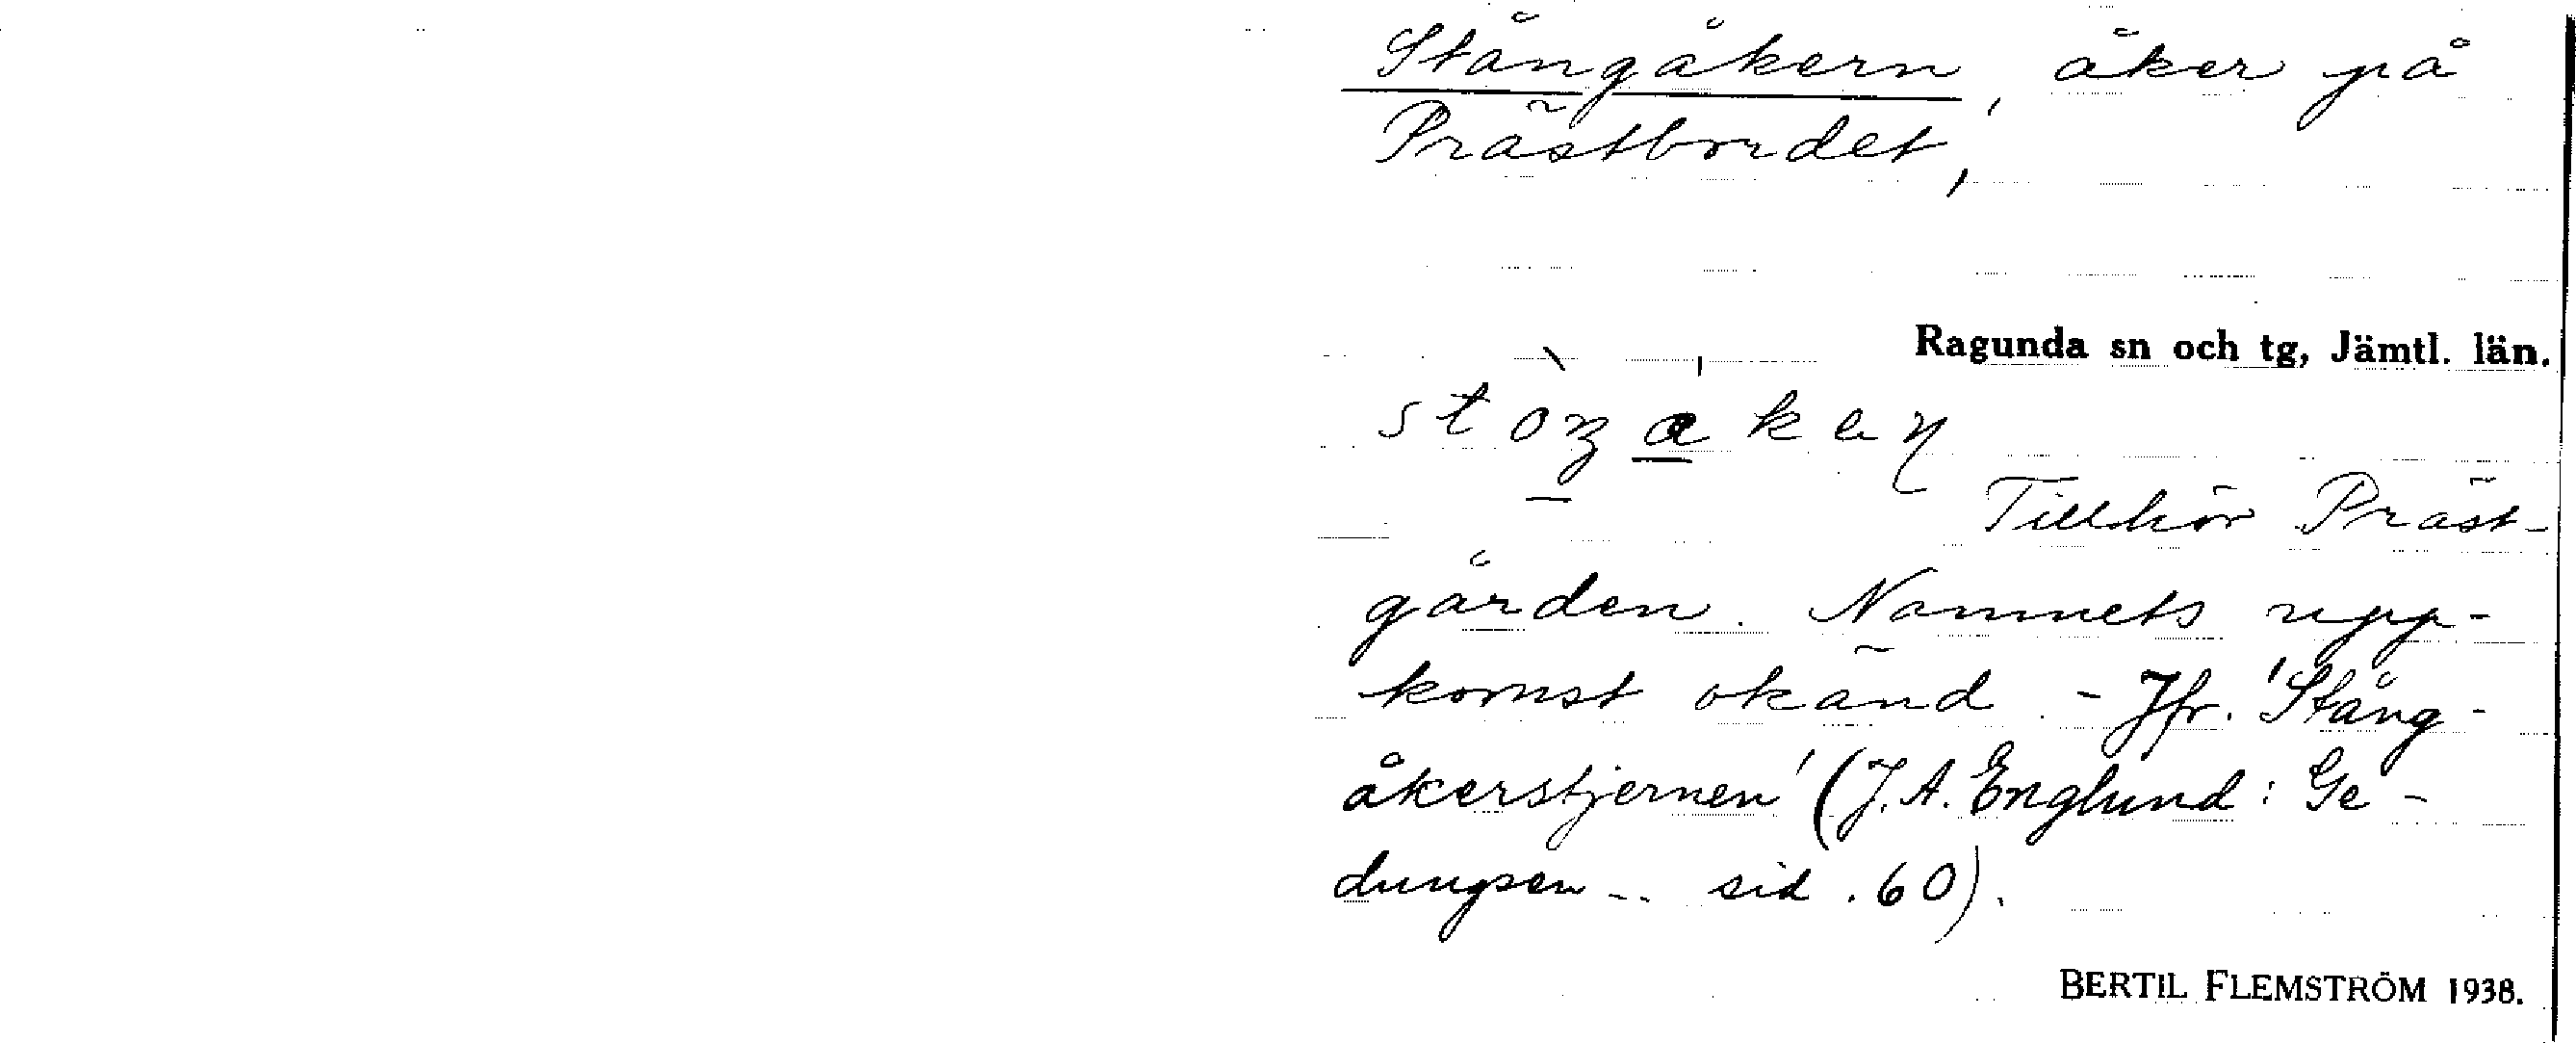 Stångåkern, åker på
Prästbordet,
Ragunda sn och tg, Jämtl. län.
Tillhör Präst-
gården. Namnets upp-
komst okänd. - Jfr. 'Stång-
åkerstjernen' (J. A. Englund: Ge-
dungsen -- sid. 60).
BERTIL FLEMSTRÖM 1938.